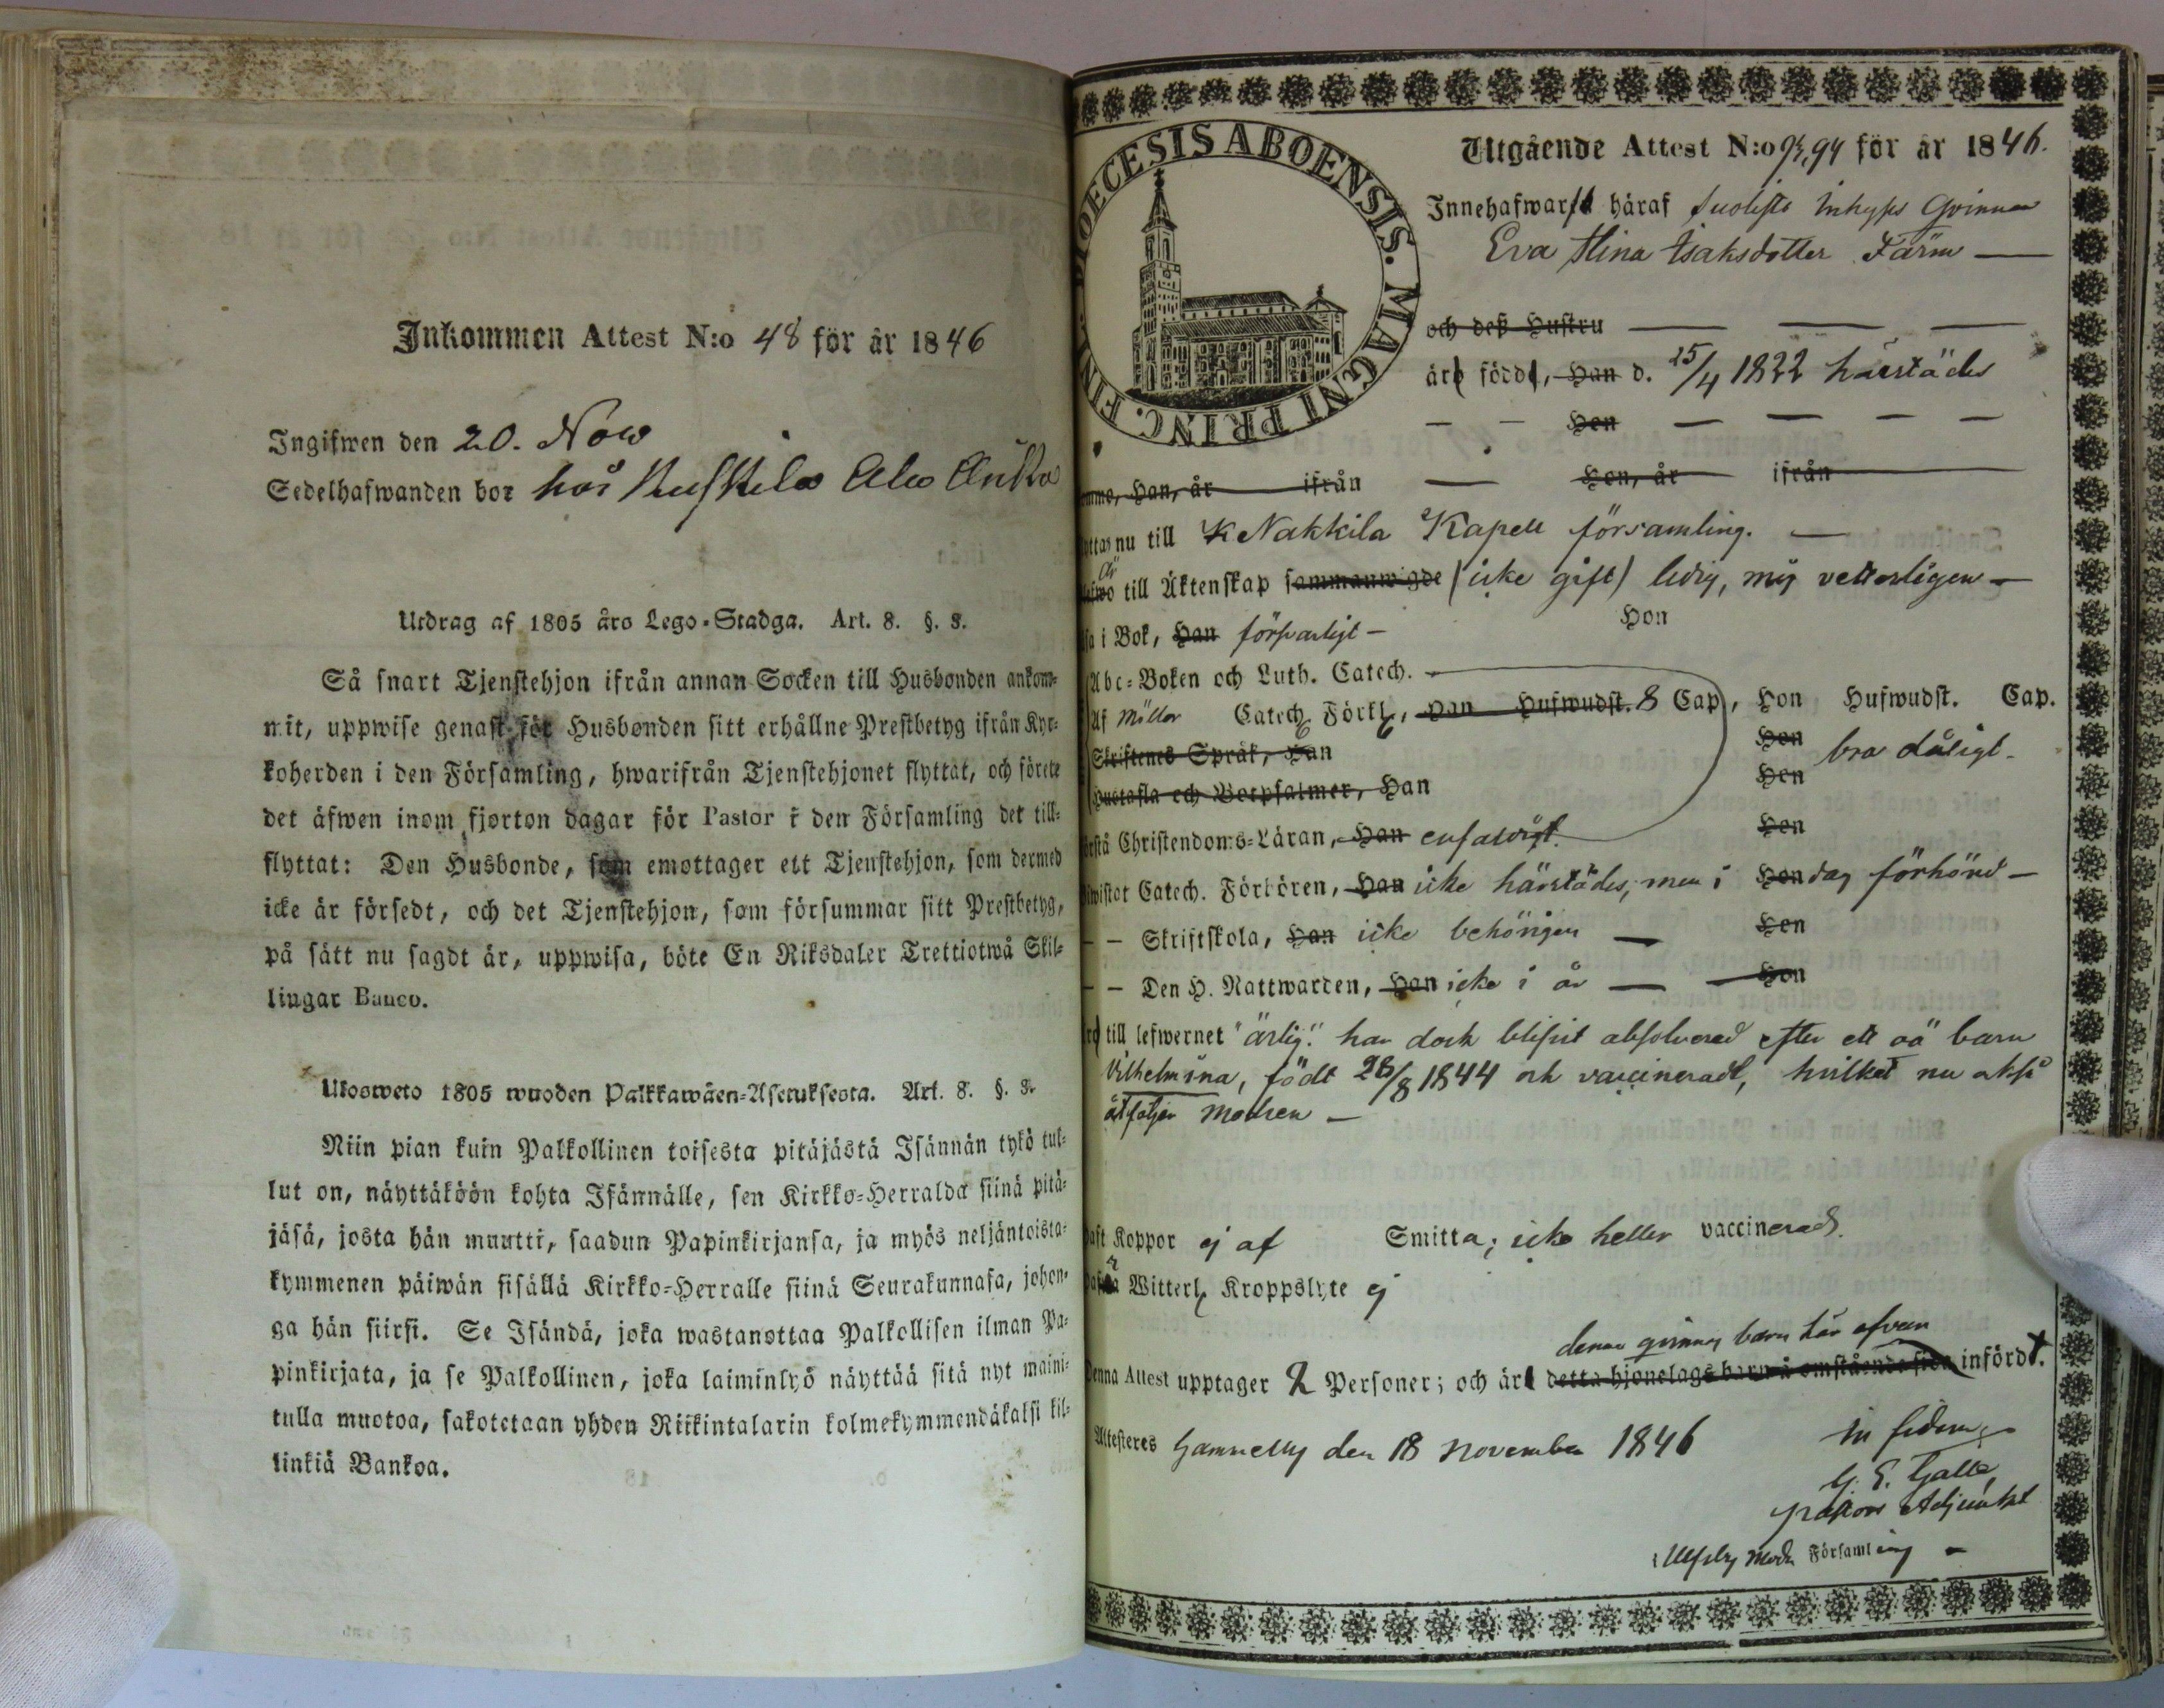 Inkommen Attest N:o 48 för år 1846
Ingifwen den 20. Nov
Sedelhafwanden bor hos
Utdrag af 1805 års Lego-Stadga. Art. 8. §. 8.
Så snart Tjenstehjon ifrån annan Socken till Husbonden ankom-
mit, uppwise genast för Husbonden sitt erhållne Prestbetyg ifrån Kyr-
koherden i den Församling, hwarifrån Tjenstehjonet flyttat, och förete
det äfwen inom fjorton dagar för Pastor i den Församling det till-
flyttat: Den Husbonde, som emottager ett Tjenstehjon, som dermed
icke är försedt, och det Tjenstehjon, som försummar sitt Prestbetyg,
på sätt nu sagdt är, uppwisa, böte En Riksdaler Trettiotwå Skil-
lingar Banco.
Ulosweto 1805 wuoden Palkkawäen-Asetuksesta. Art. 8. §. 8.
Niin pian kuin Palkollinen toisesta pitäjästä Isännän tykö tul-
lut on, näyttäköön kohta Isännälle, sen Kirkko-Herralda siinä pitä-
jäsä, josta hän muutti, saadun Papinkirjansa, ja myös neljäntoista-
kymmenen päiwän sisällä Kirkko-Herralle siinä Seurakunnasa, johon-
ga hän siirsi. Se Isändä, joka wastanottaa Palkollisen ilman Pa-
pinkirjata, ja se Palkollinen, joka laiminlyö näyttää sitä nyt maini-
tulla muotoa, sakotetaan yhden Riikintalarin kolmekymmendäkaksi kil-
linkiä Bankoa.
DIOECESIS ABOENSIS. MAGNI PRINC. FINL.
Utgående Attest N:o 93,94 för år 1846.
Innehafwarst häraf Suolisto inhyses Qvinnan
Eva Stina Isaksdotter Färm
och deß Hustru
är född, Han d. 25/4 1822 härstädes
Hon
Han, år ifrån Hon, år ifrån
nu till Nakkila Kapell församling.
är till Äktenskap sammanwigde (icke gift) ledig, mig vetterligen
i Bok, Han försvarligt Hon
Abc-Boken och Luth. Catech.
Af Catech. Förkl., Han Hufwudst. 8 Cap, Hon Hufwudst. Cap.
Skriftenes Språk, Han Hon bra dåligt
Hustafla och Botpsalmer, Han Hon
Christendoms-Läran, Han enfaldigt. Hon
Catech. Förhören, Han icke härstädes, men i Hon dag förhörd
Skriftskola, Han icke behörigen Hon
Den H. Nattwarden, Han icke i år Hon
till lefwernet "ärlig". har dock blifvit absolverad efter ett oä barn
Vilhelmina, födt 28/8 1844 och vaccineradt, hvilket nu också
åtföljer modren
Koppor ej af Smitta; icke heller vaccinerad.
Witterl. Kroppslyte ej
denna qvinnas barn här ofvan
Denna Attest upptager 2 Personer; och är detta hjonelags barn å omstående sida infördt.
Attesteres Gammelby den 18 November 1846
in fidem
G. E. Galle
Adjunkt
Ulfsby Moder Församling